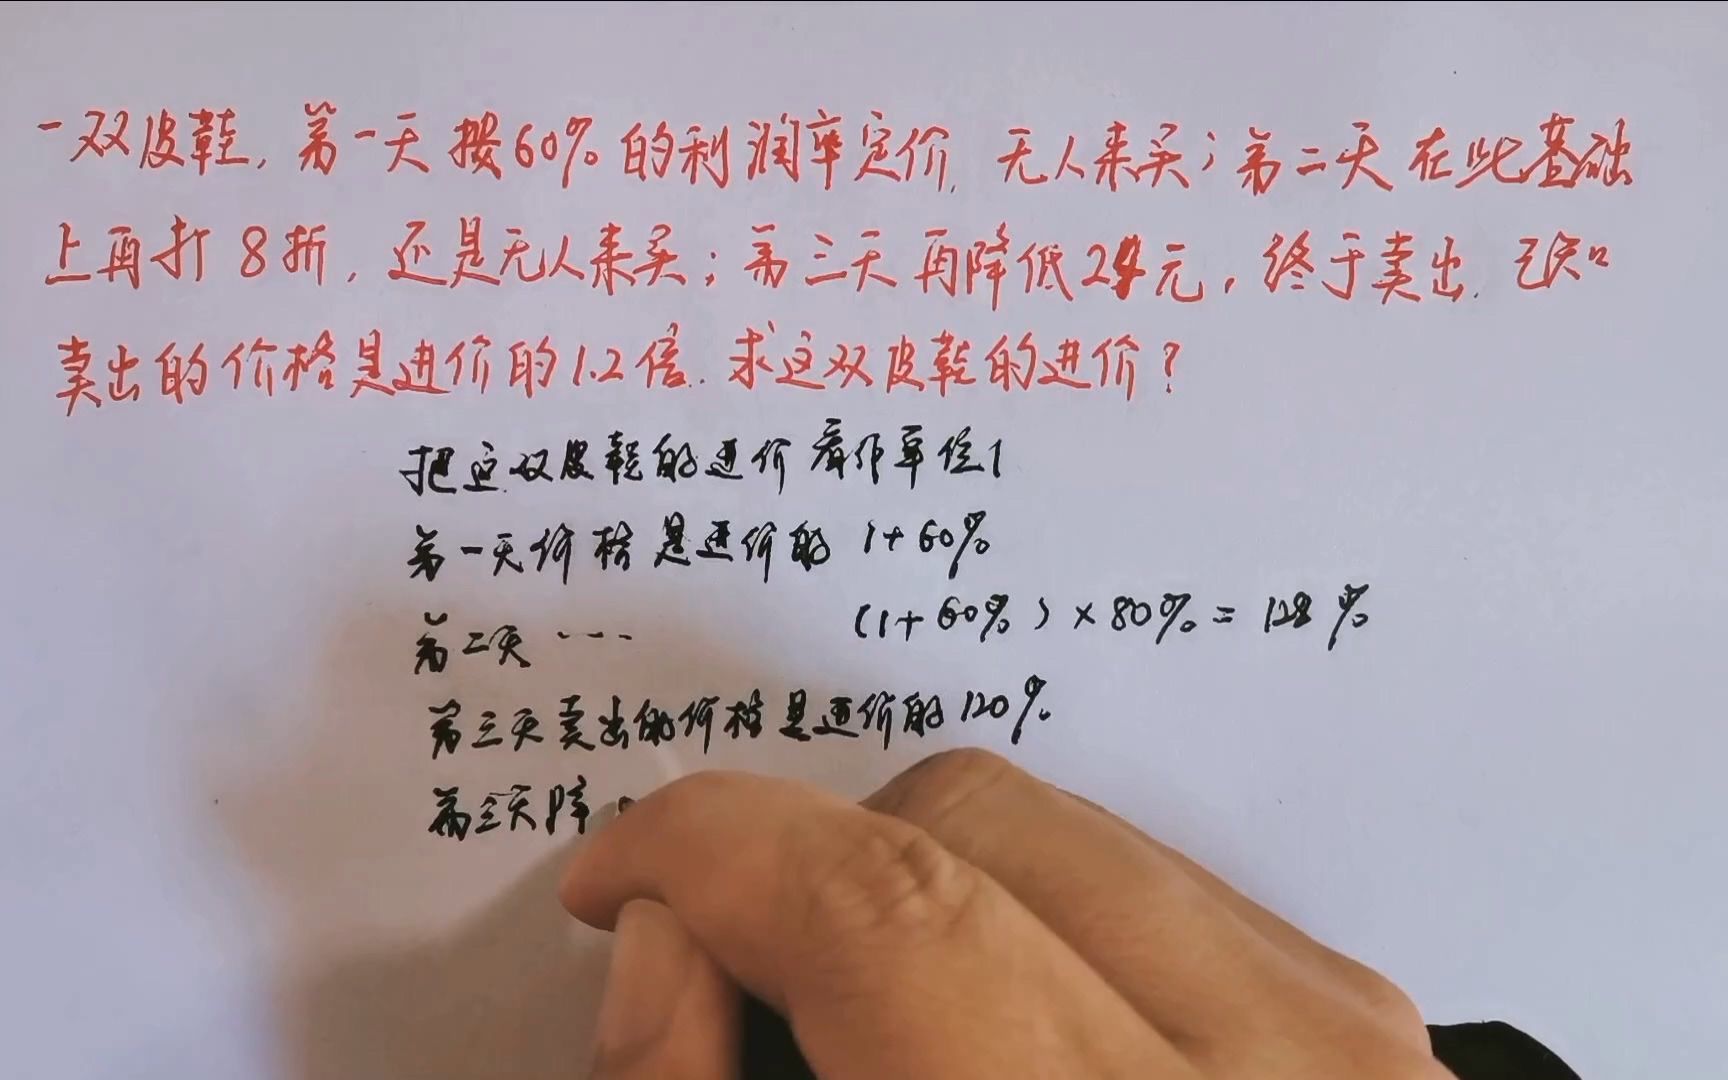 一双皮鞋,第一天按60%的利润率定价,无人来买;第二天在此基础
上再打8折,还是无人来买;第三天再降低24元,终于卖出.已知
卖出的价格是进价的1.2倍.求这双皮鞋的进价?
把这双皮鞋的进价看作单位1
第一天价格是进价的 1+60%
第二天 ---- (1+60%)×80%=128%
第三天卖出的价格是进价的120%
第三天降